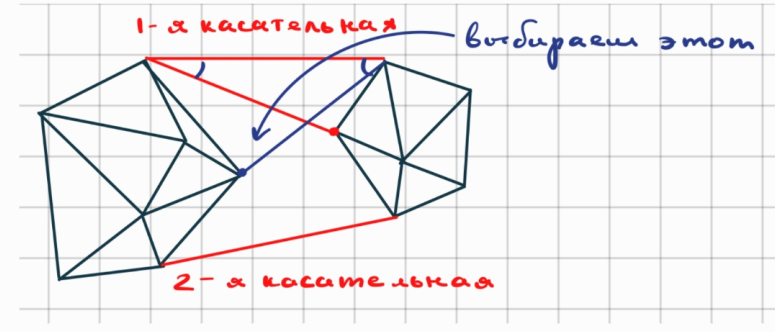 1-я касательная
выбираем этот
2-я касательная